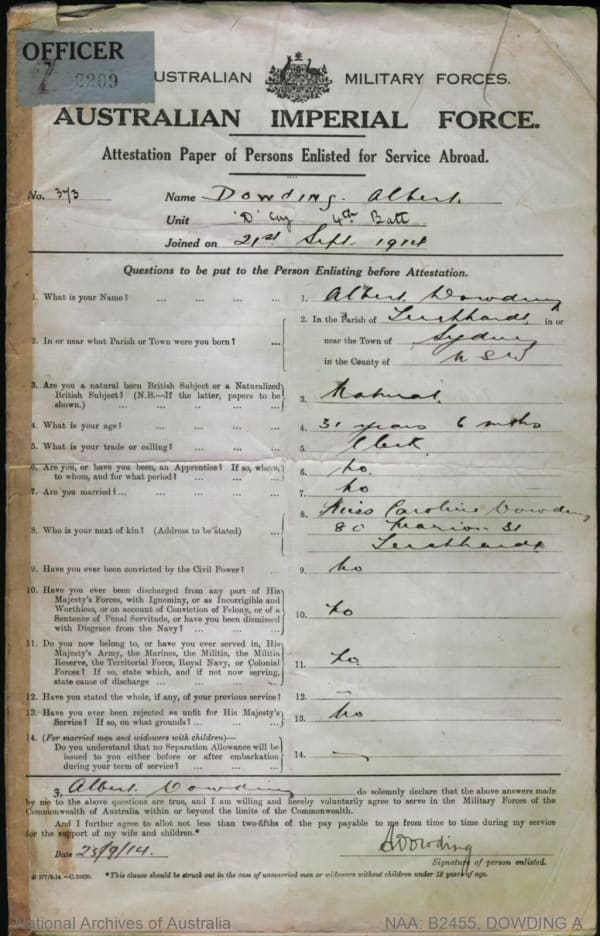 OFFICER
2209
AUSTRALIAN MILITARY FORCES.
AUSTRALIAN IMPERIAL FORCE.
Attestation Paper of Persons Enlisted for Service Abroad.
No. 373 Name Dowding. Albert.
Unit 'D' Coy 4th Batt
Joined on 21st Sept. 1914
Questions to be put to the Person Enlisting before Attestation.
1. What is your Name? ... ... ... ... 1. Albert Dowding
2. In or near what Parish or Town were you born? ... 2. In the Parish of Leichhardt in or
near the Town of Sydney
in the County of N S W
3. Are you a natural born British Subject or a Naturalized
British Subject? (N.B.—If the latter, papers to be
shown.) ... ... ... ... 3. Natural.
4. What is your age? ... ... ... ... 4. 31 years 6 mths
5. What is your trade or calling? ... ... ... 5. Clerk.
6. Are you, or have you been, an Apprentice? If so, where,
to whom, and for what period? ... ... ... 6. No.
7. Are you married? ... ... ... ... ... 7. No
8. Who is your next of kin? (Address to be stated) ... 8. Miss Caroline Dowding
80 Marion St
Leichhardt
9. Have you ever been convicted by the Civil Power? ... 9. No
10. Have you ever been discharged from any part of His
Majesty's Forces, with Ignominy, or as Incorrigible and
Worthless, or on account of Conviction of Felony, or of a
Sentence of Penal Servitude, or have you been dismissed
with Disgrace from the Navy? ... ... ... 10. No
11. Do you now belong to, or have you ever served in, His
Majesty's Army, the Marines, the Militia, the Militia
Reserve, the Territorial Force, Royal Navy, or Colonial
Forces? If so, state which, and if not now serving,
state cause of discharge ... ... ... ... 11. No.
12. Have you stated the whole, if any, of your previous service? 12. —
13. Have you ever been rejected as unfit for His Majesty's
Service? If so, on what grounds? ... ... ... 13. No
14. (For married men and widowers with children)—
Do you understand that no Separation Allowance will be
issued to you either before or after embarkation
during your term of service? ... ... ... 14. —
I, Albert Dowding do solemnly declare that the above answers made
by me to the above questions are true, and I am willing and hereby voluntarily agree to serve in the Military Forces of the
Commonwealth of Australia within or beyond the limits of the Commonwealth.
And I further agree to allot not less than two-fifths of the pay payable to me from time to time during my service
for the support of my wife and children.*
Date 25/9/14. ADowding
Signature of person enlisted.
*This clause should be struck out in the case of unmarried men or widowers without children under 18 years of age.
National Archives of Australia NAA: B2455, DOWDING A